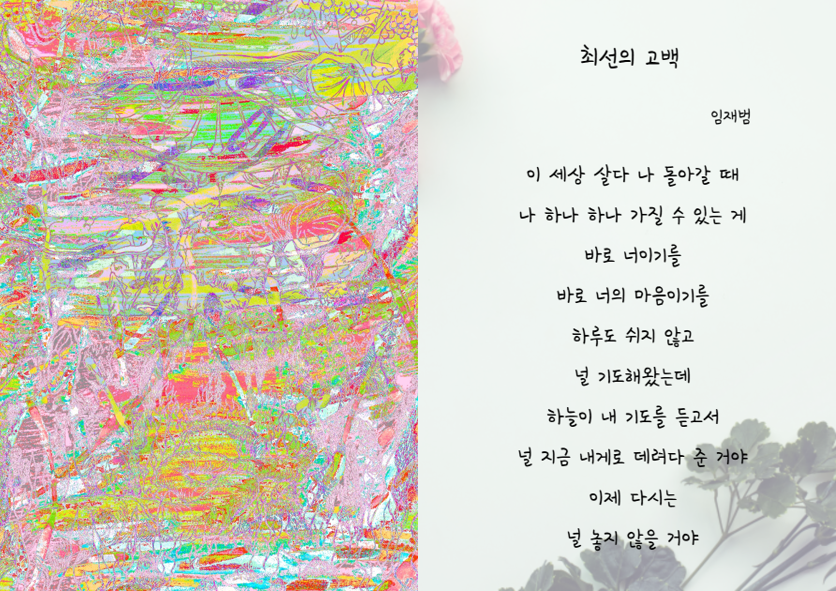 최선의 고백
임재범
이 세상 살다 나 돌아갈 때
나 하나 하나 가질 수 있는 게
바로 너이기를
바로 너의 마음이기를
하루도 쉬지 않고
널 기도해왔는데
하늘이 내 기도를 듣고서
널 지금 내게로 데려다 준 거야
이제 다시는
널 놓지 않을 거야